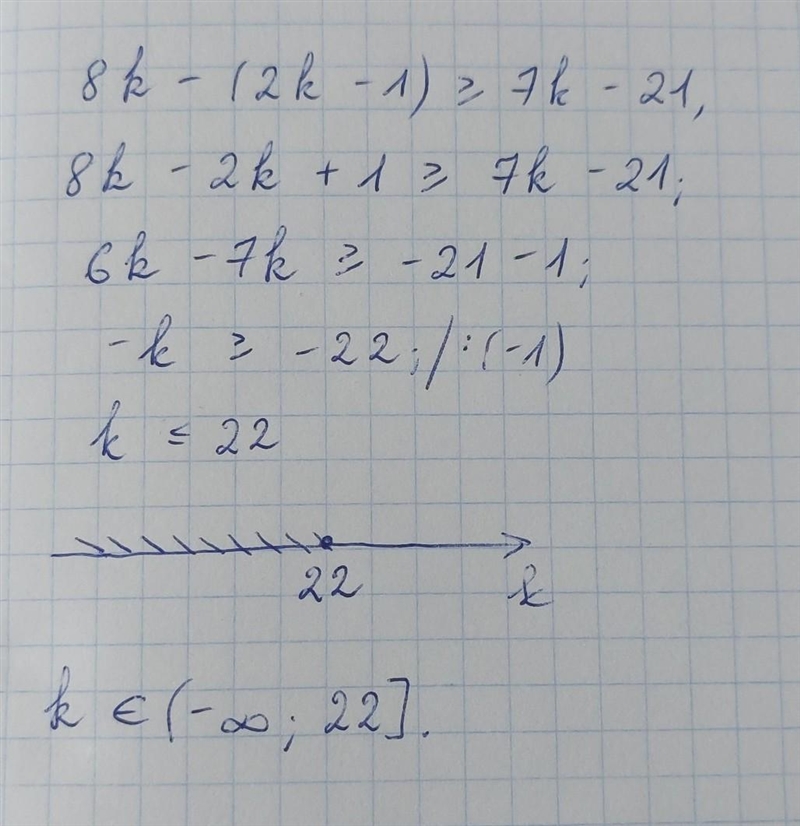 8k - (2k - 1) ≥ 7k - 21,
8k - 2k + 1 ≥ 7k - 21;
6k - 7k ≥ -21 - 1;
-k ≥ -22; /:(-1)
k ≤ 22
22 k
k ∈ (-∞; 22].